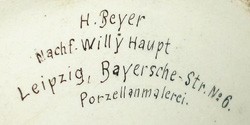 H. Beyer
Nachf. Willy Haupt
Leipzig, Bayersche-Str. No 6.
Porzellanmalerei.